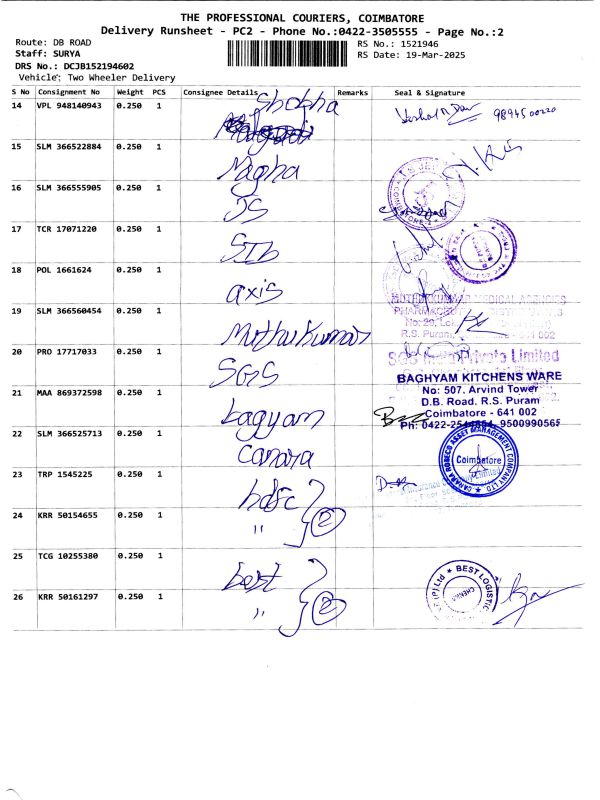 THE PROFESSIONAL COURIERS, COIMBATORE
Delivery Runsheet - PC2 - Phone No.:0422-3505555 - Page No.:2
Route: DB ROAD RS No.: 1521946
Staff: SURYA RS Date: 19-Mar-2025
DRS No.: DCJB152194602
Vehicle: Two Wheeler Delivery
S No Consignment No Weight PCS Consignee Details Remarks Seal & Signature
14 VPL 948140943 0.250 1 Shobha 9894500220
15 SLM 366522884 0.250 1 Megha
16 SLM 366555905 0.250 1 JS
17 TCR 17071220 0.250 1 STB
18 POL 1661624 0.250 1 axis
MUTHUKUMAR MEDICAL AGENCIES
19 SLM 366560454 0.250 1 Muthu Kumar
R.S. Puram, 641 002
20 PRO 17717033 0.250 1 SGS
SGS Private Limited
21 MAA 869372598 0.250 1 bagyam
BAGHYAM KITCHENS WARE
No: 507, Arvind Tower
D.B. Road, R.S. Puram
Coimbatore - 641 002
Ph: 0422-2544604, 9500990565
22 SLM 366525713 0.250 1 canara
CANARA ROBECO ASSET MANAGEMENT COMPANY LTD
Coimbatore
23 TRP 1545225 0.250 1 hdfc
24 KRR 50154655 0.250 1 " 2
25 TCG 10255380 0.250 1 best
26 KRR 50161297 0.250 1 " 2
BEST LOGISTIC (P) Ltd
CHENNAI